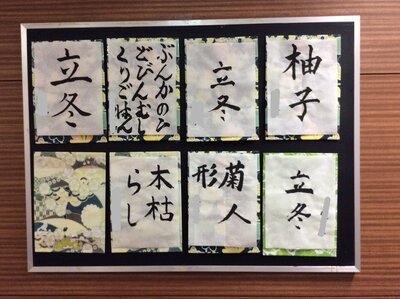 柚子
立冬
ぶんかのひ
どびんむし
くりごはん
立冬
立冬
菊人
形
木枯
らし